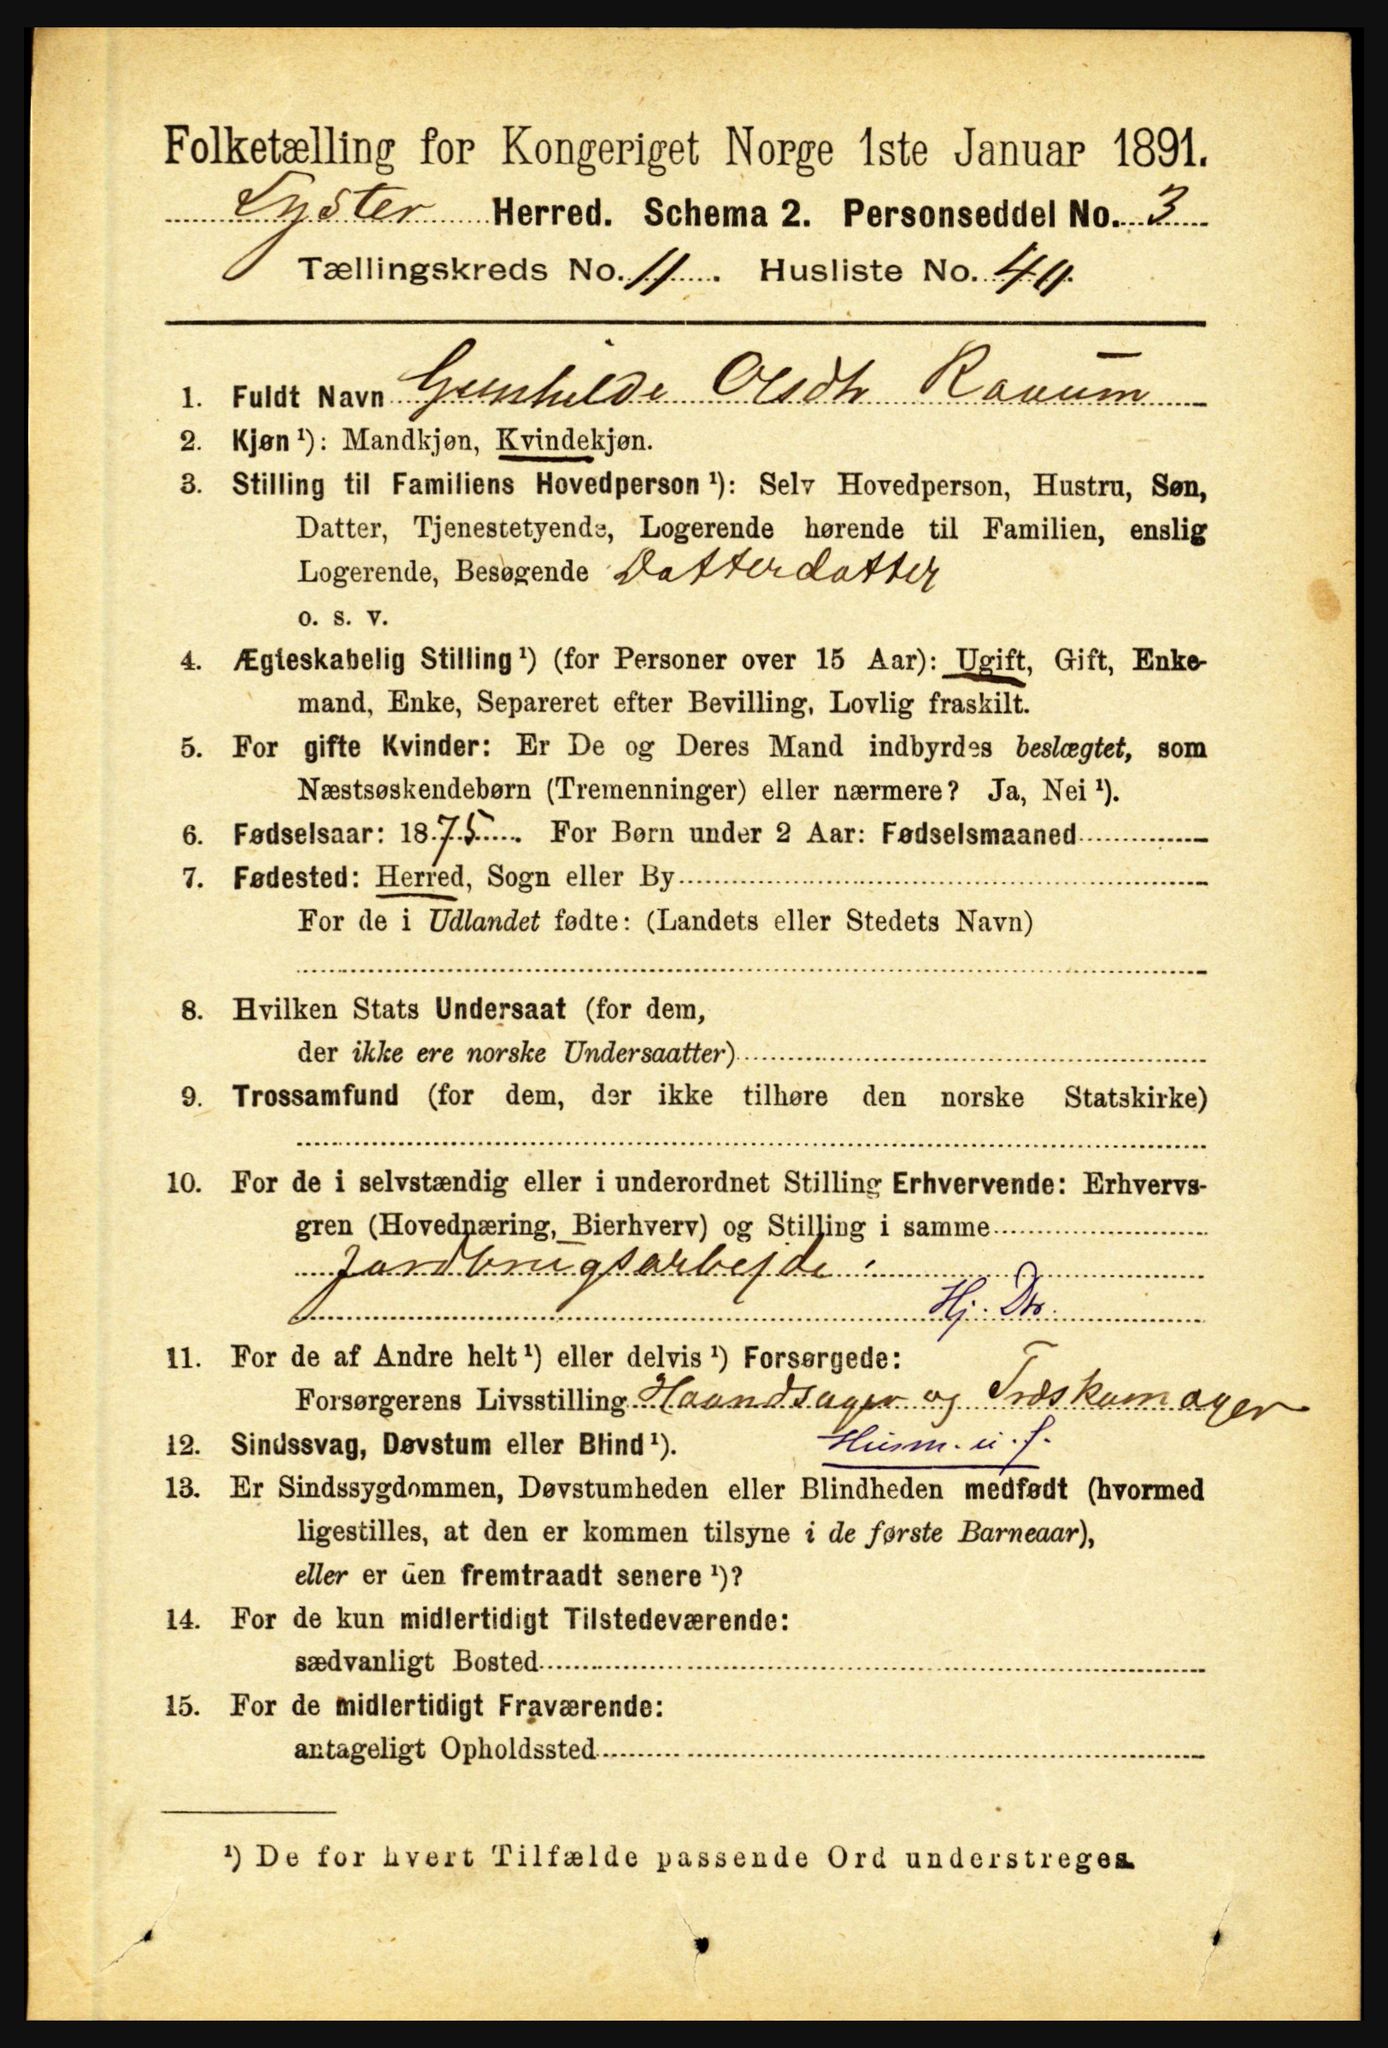 Folketælling for Kongeriget Norge 1ste Januar 1891.
Lyster Herred. Schema 2. Personseddel No. 3
Tællingskreds No. 11. Husliste No. 40.
1. Fuldt Navn Gunhilde Olsdtr Raaum
2. Kjøn ¹): Mandkjøn, Kvindekjøn.
3. Stilling til Familiens Hovedperson ¹): Selv Hovedperson, Hustru, Søn,
Datter, Tjenestetyende, Logerende hørende til Familien, enslig
Logerende, Besøgende Datterdatter
o. s. v.
4. Ægteskabelig Stilling ¹) (for Personer over 15 Aar): Ugift, Gift, Enke-
mand, Enke, Separeret efter Bevilling, Lovlig fraskilt.
5. For gifte Kvinder: Er De og Deres Mand indbyrdes beslægtet, som
Næstsøskendebørn (Tremenninger) eller nærmere? Ja, Nei ¹).
6. Fødselsaar: 1875. For Børn under 2 Aar: Fødselsmaaned
7. Fødested: Herred, Sogn eller By
For de i Udlandet fødte: (Landets eller Stedets Navn)
8. Hvilken Stats Undersaat (for dem,
der ikke ere norske Undersaatter)
9. Trossamfund (for dem, der ikke tilhøre den norske Statskirke)
10. For de i selvstændig eller i underordnet Stilling Erhvervende: Erhvervs-
gren (Hovednæring, Bierhverv) og Stilling i samme
Jordbrugsarbejde.
Hj. Dtr.
11. For de af Andre helt ¹) eller delvis ¹) Forsørgede:
Forsørgerens Livsstilling Haandsager og Træskomager
12. Sindssvag, Døvstum eller Blind ¹). Husm. u. j.
13. Er Sindssygdommen, Døvstumheden eller Blindheden medfødt (hvormed
ligestilles, at den er kommen tilsyne i de første Barneaar),
eller er den fremtraadt senere ¹)?
14. For de kun midlertidigt Tilstedeværende:
sædvanligt Bosted
15. For de midlertidigt Fraværende:
antageligt Opholdssted
¹) De for hvert Tilfælde passende Ord understreges.